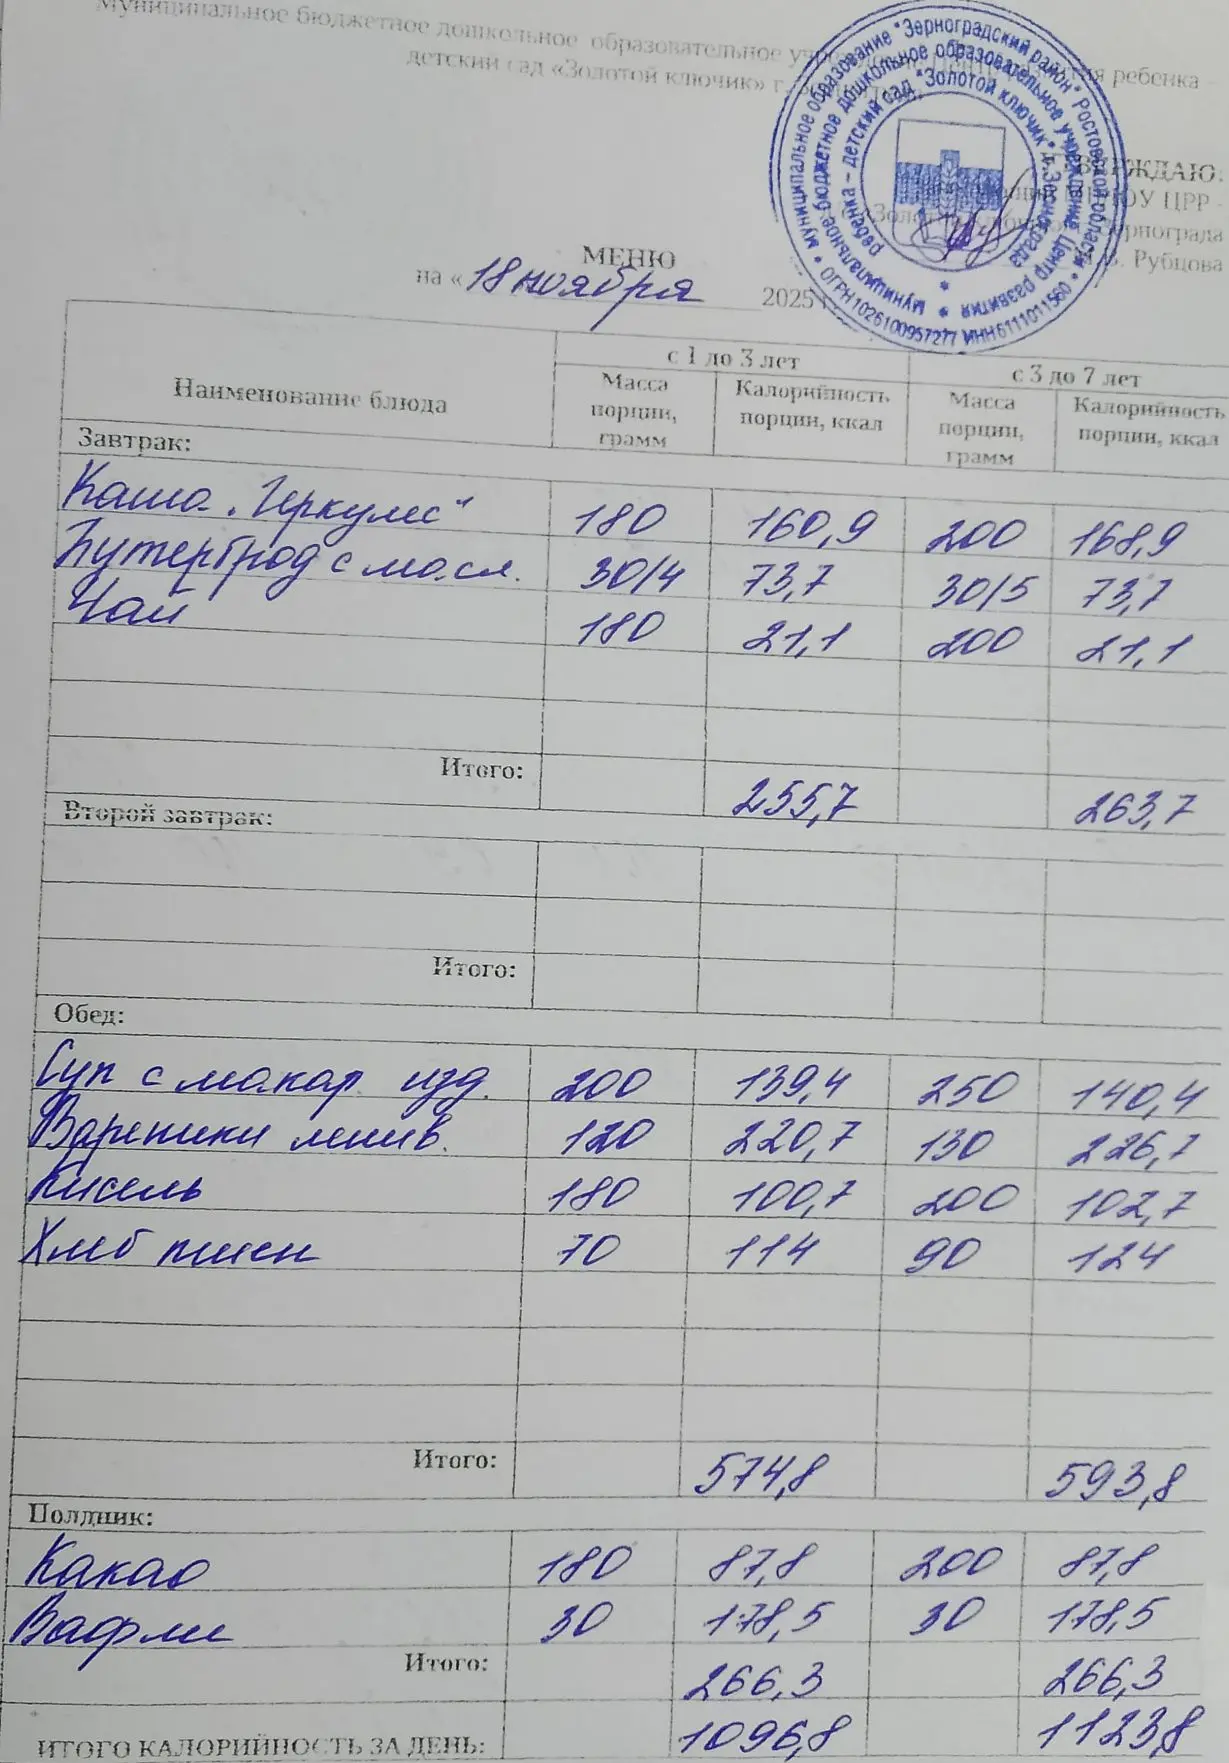 Муниципальное бюджетное дошкольное образовательное ребенка -
детский сад «Золотой ключик» г.
Муниципальное образование "Зерноградский район" Ростовской области
муниципальное бюджетное дошкольное образовательное учреждение Центр развития
ребенка - детский сад "Золотой ключик" г. Зернограда
ОГРН 1026100957277 ИНН 6111011560
УТВЕРЖДАЮ:
ЦРР -
Зернограда
Рубцова
МЕНЮ
на « 18 ноября 2025 г.
Наименование блюда с 1 до 3 лет с 3 до 7 лет
Масса порции, грамм Калорийность порции, ккал Масса порции, грамм Калорийность порции, ккал
Завтрак:
Каша „Геркулес" 180 160,9 200 168,9
Бутерброд с масл. 30/4 73,7 30/5 73,7
Чай 180 21,1 200 21,1
Итого: 255,7 263,7
Второй завтрак:
Итого:
Обед:
Суп с макар. изд. 200 139,4 250 140,4
Вареники ленив. 120 220,7 130 226,7
Кисель 180 100,7 200 102,7
Хлеб пшен 70 114 90 124
Итого: 574,8 593,8
Полдник:
Какао 180 87,8 200 87,8
Вафли 30 178,5 30 178,5
Итого: 266,3 266,3
ИТОГО КАЛОРИЙНОСТЬ ЗА ДЕНЬ: 1096,8 1123,8